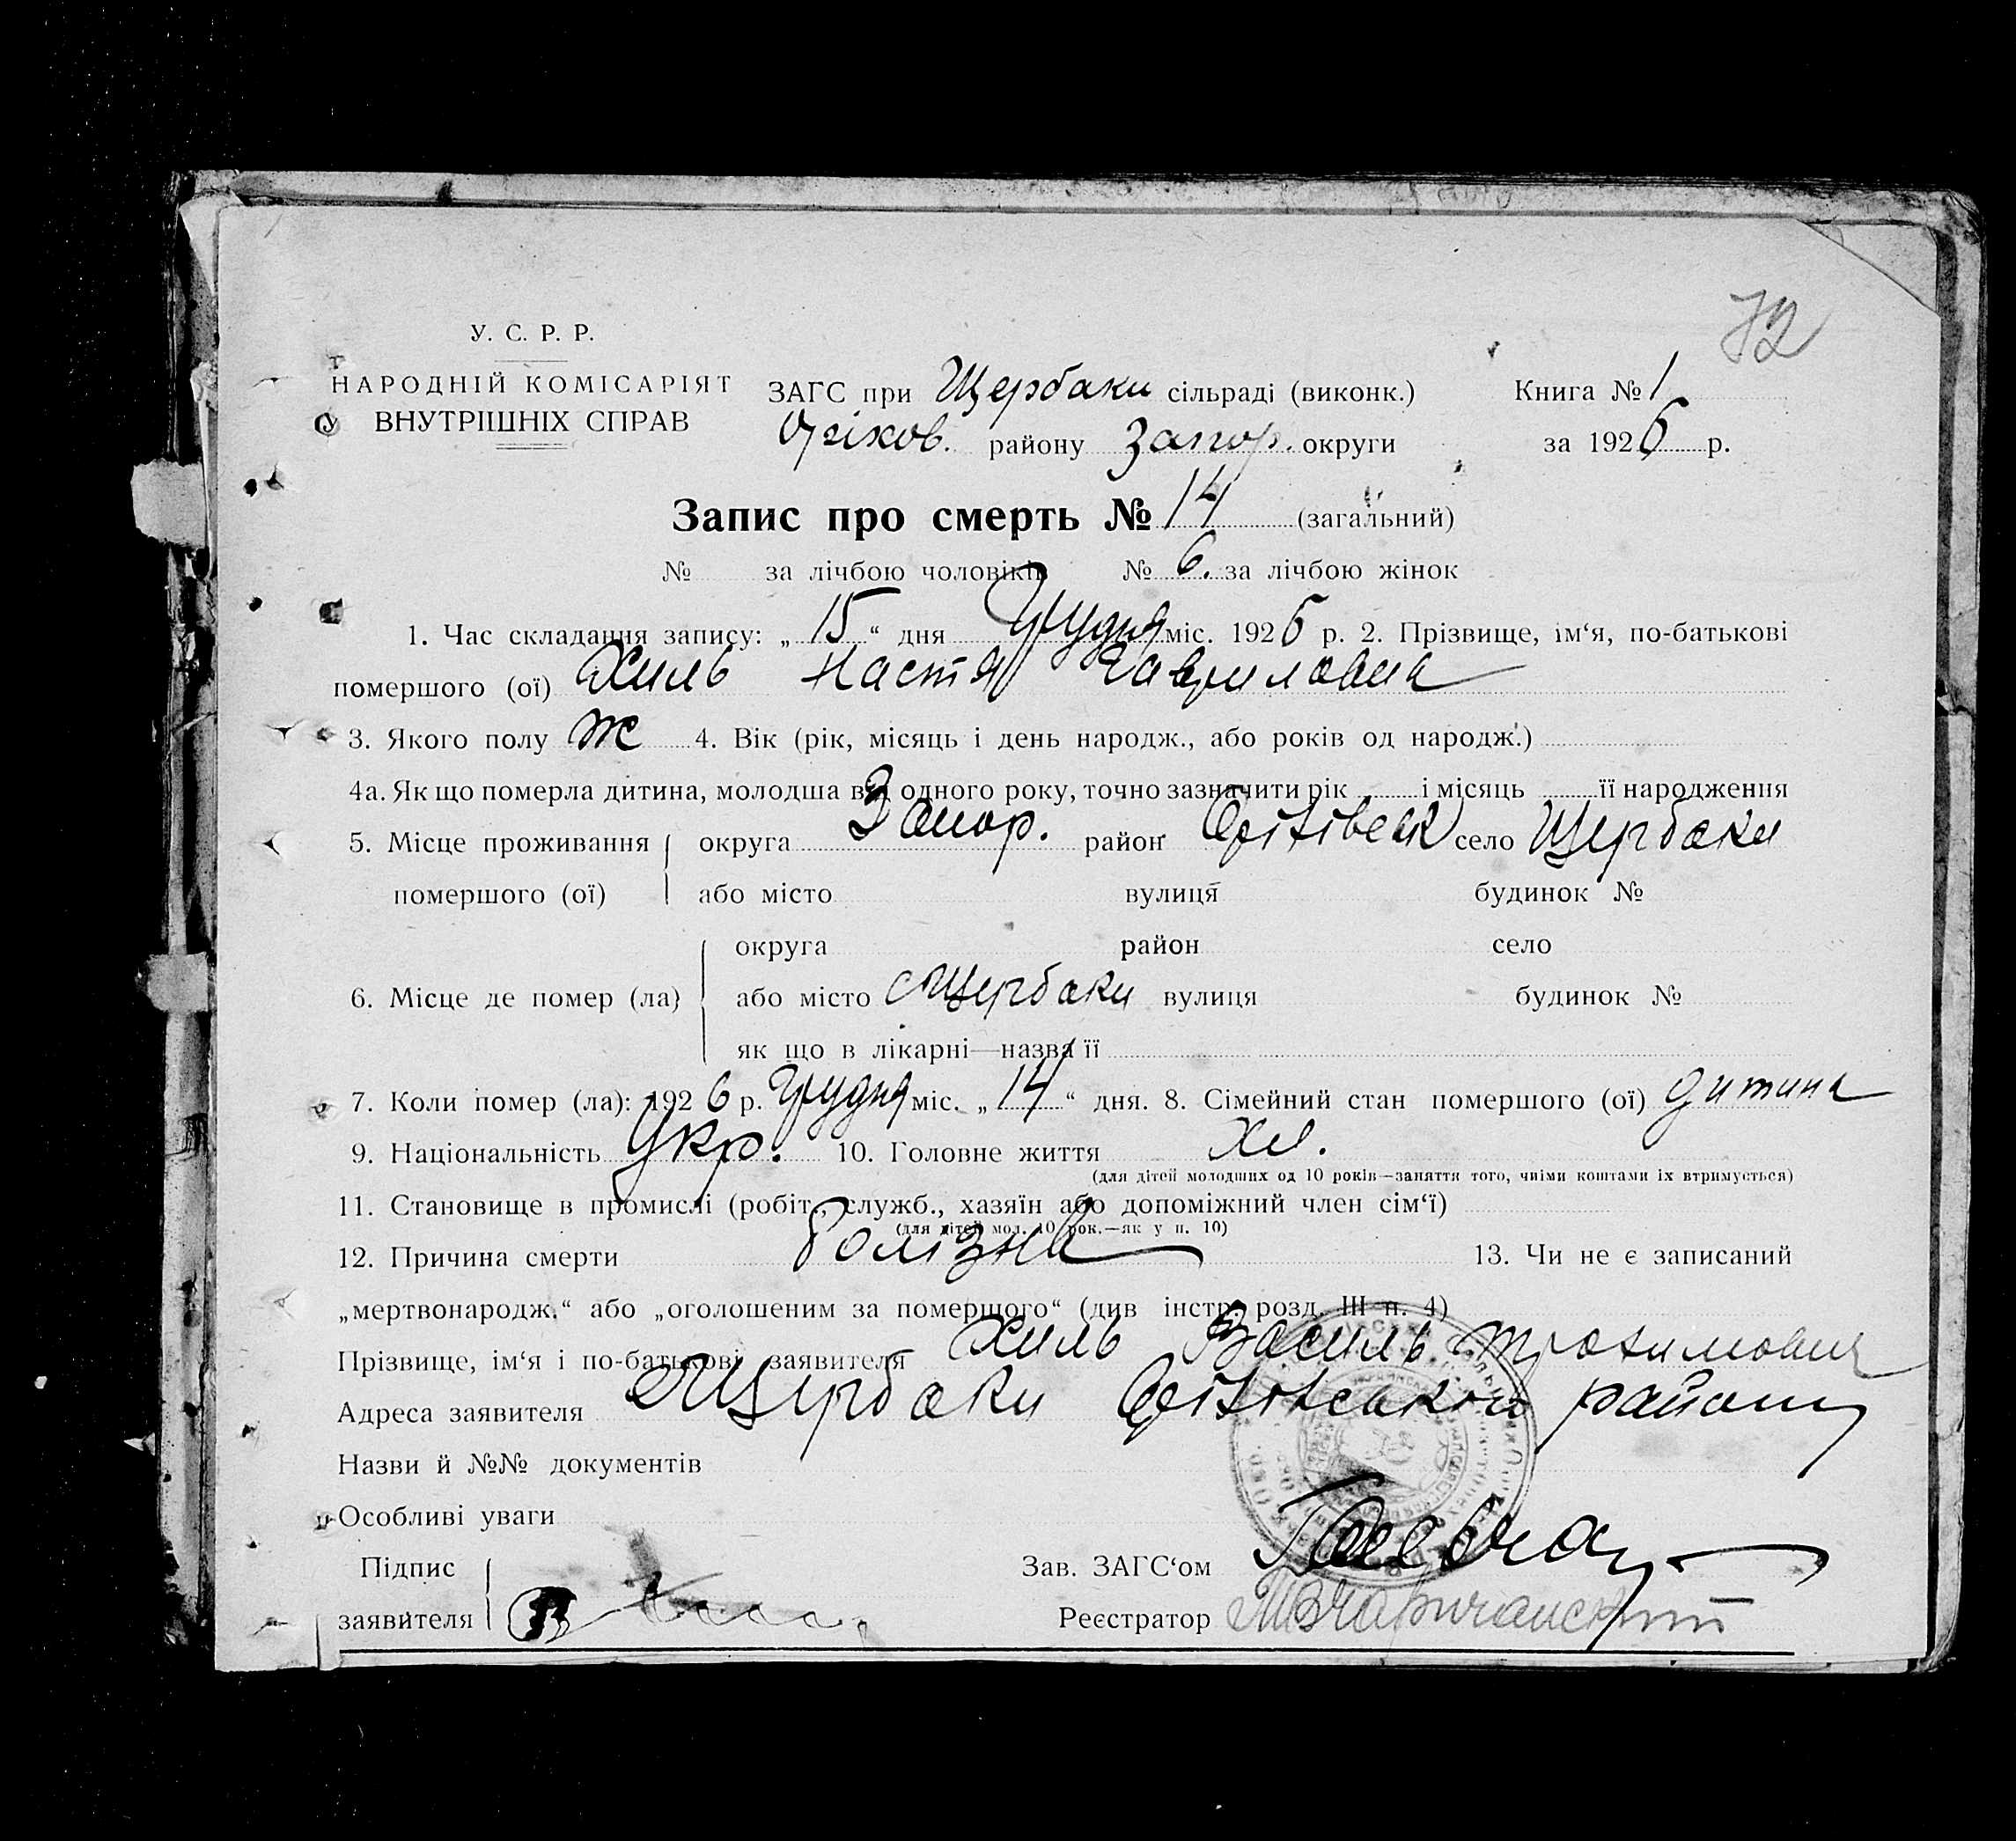 72
У. С. Р. Р.
НАРОДНІЙ КОМІСАРІЯТ
ВНУТРІШНІХ СПРАВ
ЗАГС при Щербаки сільраді (виконк.) Книга № 1
Оріхов. району Запор. округи за 1926 р.
Запис про смерть № 14 (загальний)
№ за лічбою чоловіків № 6. за лічбою жінок
1. Час складання запису: „15“ дня Грудня міс. 1926 р. 2. Прізвище, ім‘я, по-батькові
помершого (ої) Хиль Настя Гавриловна
3. Якого полу ж 4. Вік (рік, місяць і день народж., або років од народж.)
4а. Як що померла дитина, молодша від одного року, точно зазначити рік і місяць її народження
5. Місце проживання округа Запор. район село Щербаки
помершого (ої) або місто вулиця будинок №
округа район село
6. Місце де помер (ла) або місто с Щербаки вулиця будинок №
як що в лікарні—назва її
7. Коли помер (ла): 1926 р. Грудня міс. „14“ дня. 8. Сімейний стан помершого (ої) дитина
9. Національність Укр. 10. Головне життя хл.
(для дітей молодших од 10 років—заняття того, чиїми коштами їх втримується)
11. Становище в промислі (робіт., служб., хазяїн або допоміжний член сім‘ї)
(для дітей мол. 10 рок.—як у п. 10)
12. Причина смерти Болізна 13. Чи не є записаний
„мертвонародж.“ або „оголошеним за померщого“ (див інстр. розд. III п. 4)
Прізвище, ім‘я і по-батькові заявителя Хиль Василь Трохимович
Адреса заявителя с Щербаки Оріхівського району
Назви й №№ документів
Особливі уваги
Підпис
заявителя
Зав. ЗАГС‘ом
Реєстратор